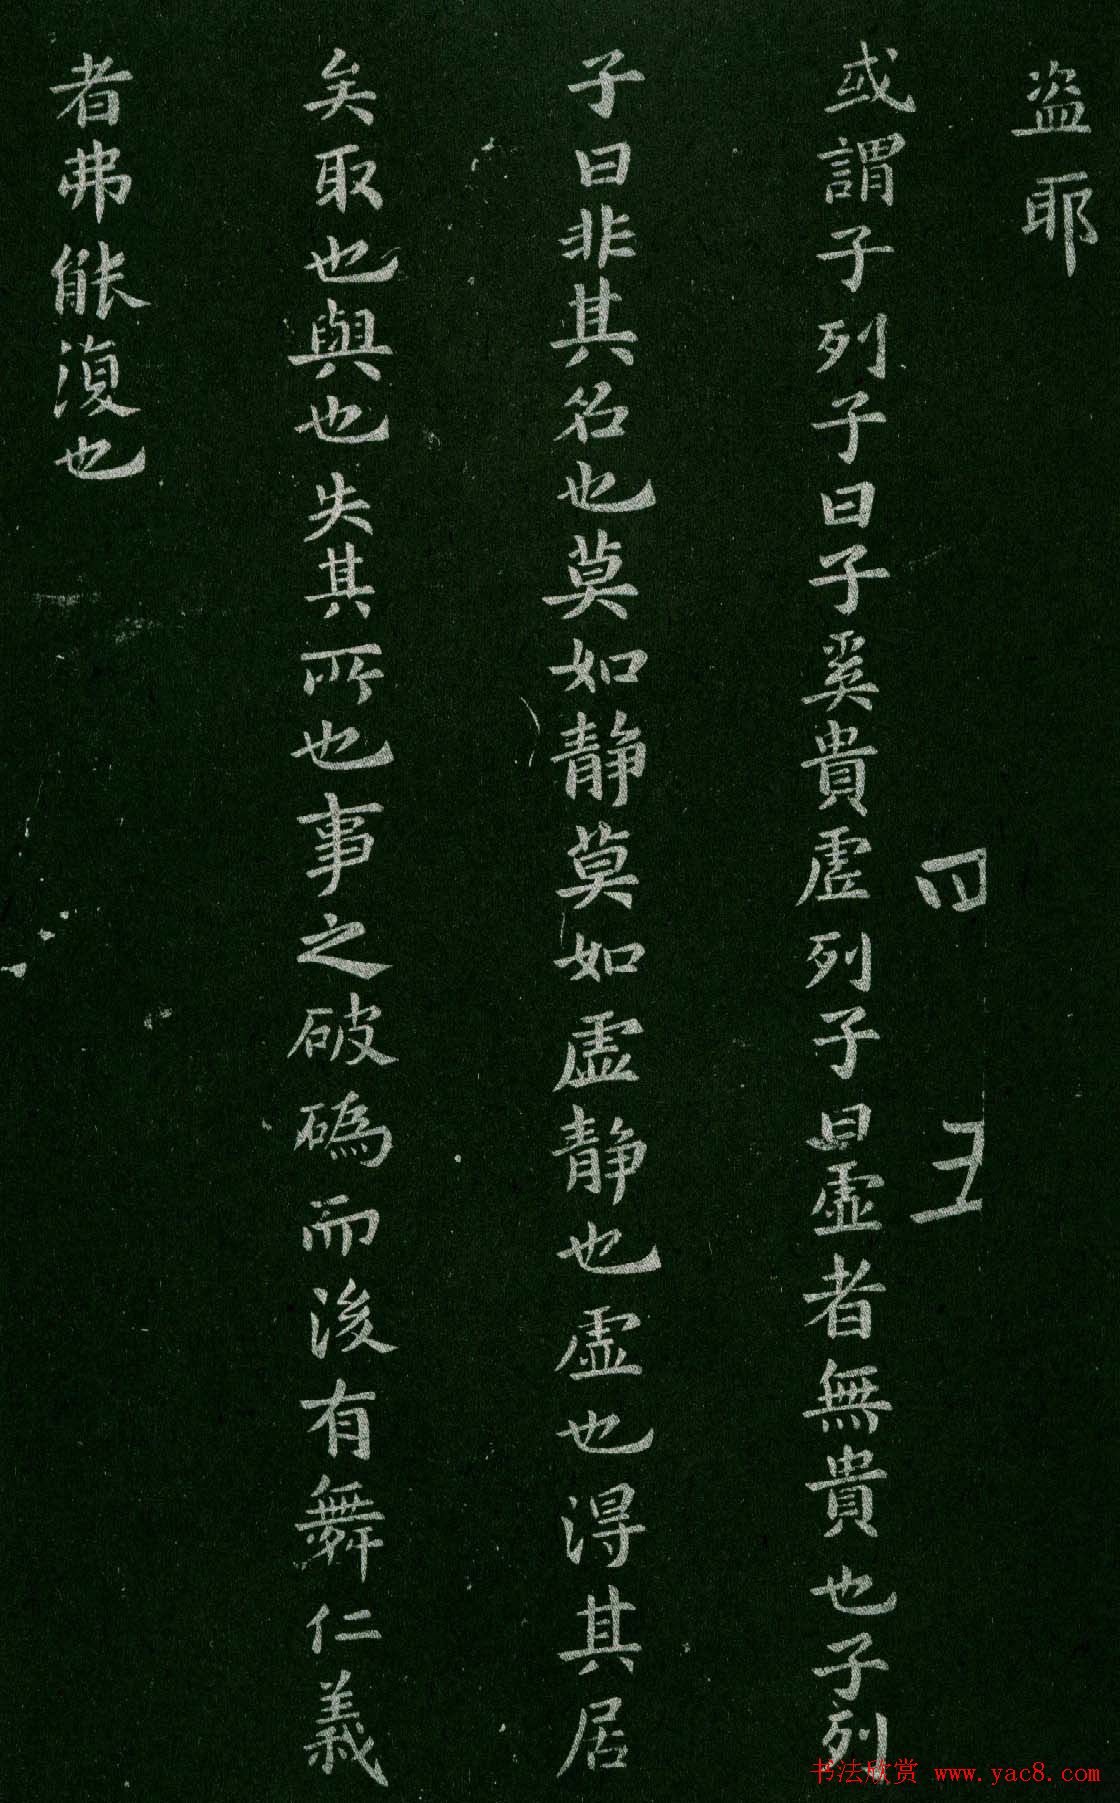 盜耶
或謂子列子曰子奚貴虛列子曰虛者無貴也子列
四 五
子曰非其名也莫如静莫如虛静也虛也得其居
矣取也與也失其所也事之破䃣而後有舞仁義
者弗能復也
书法欣赏 www.yac8.com